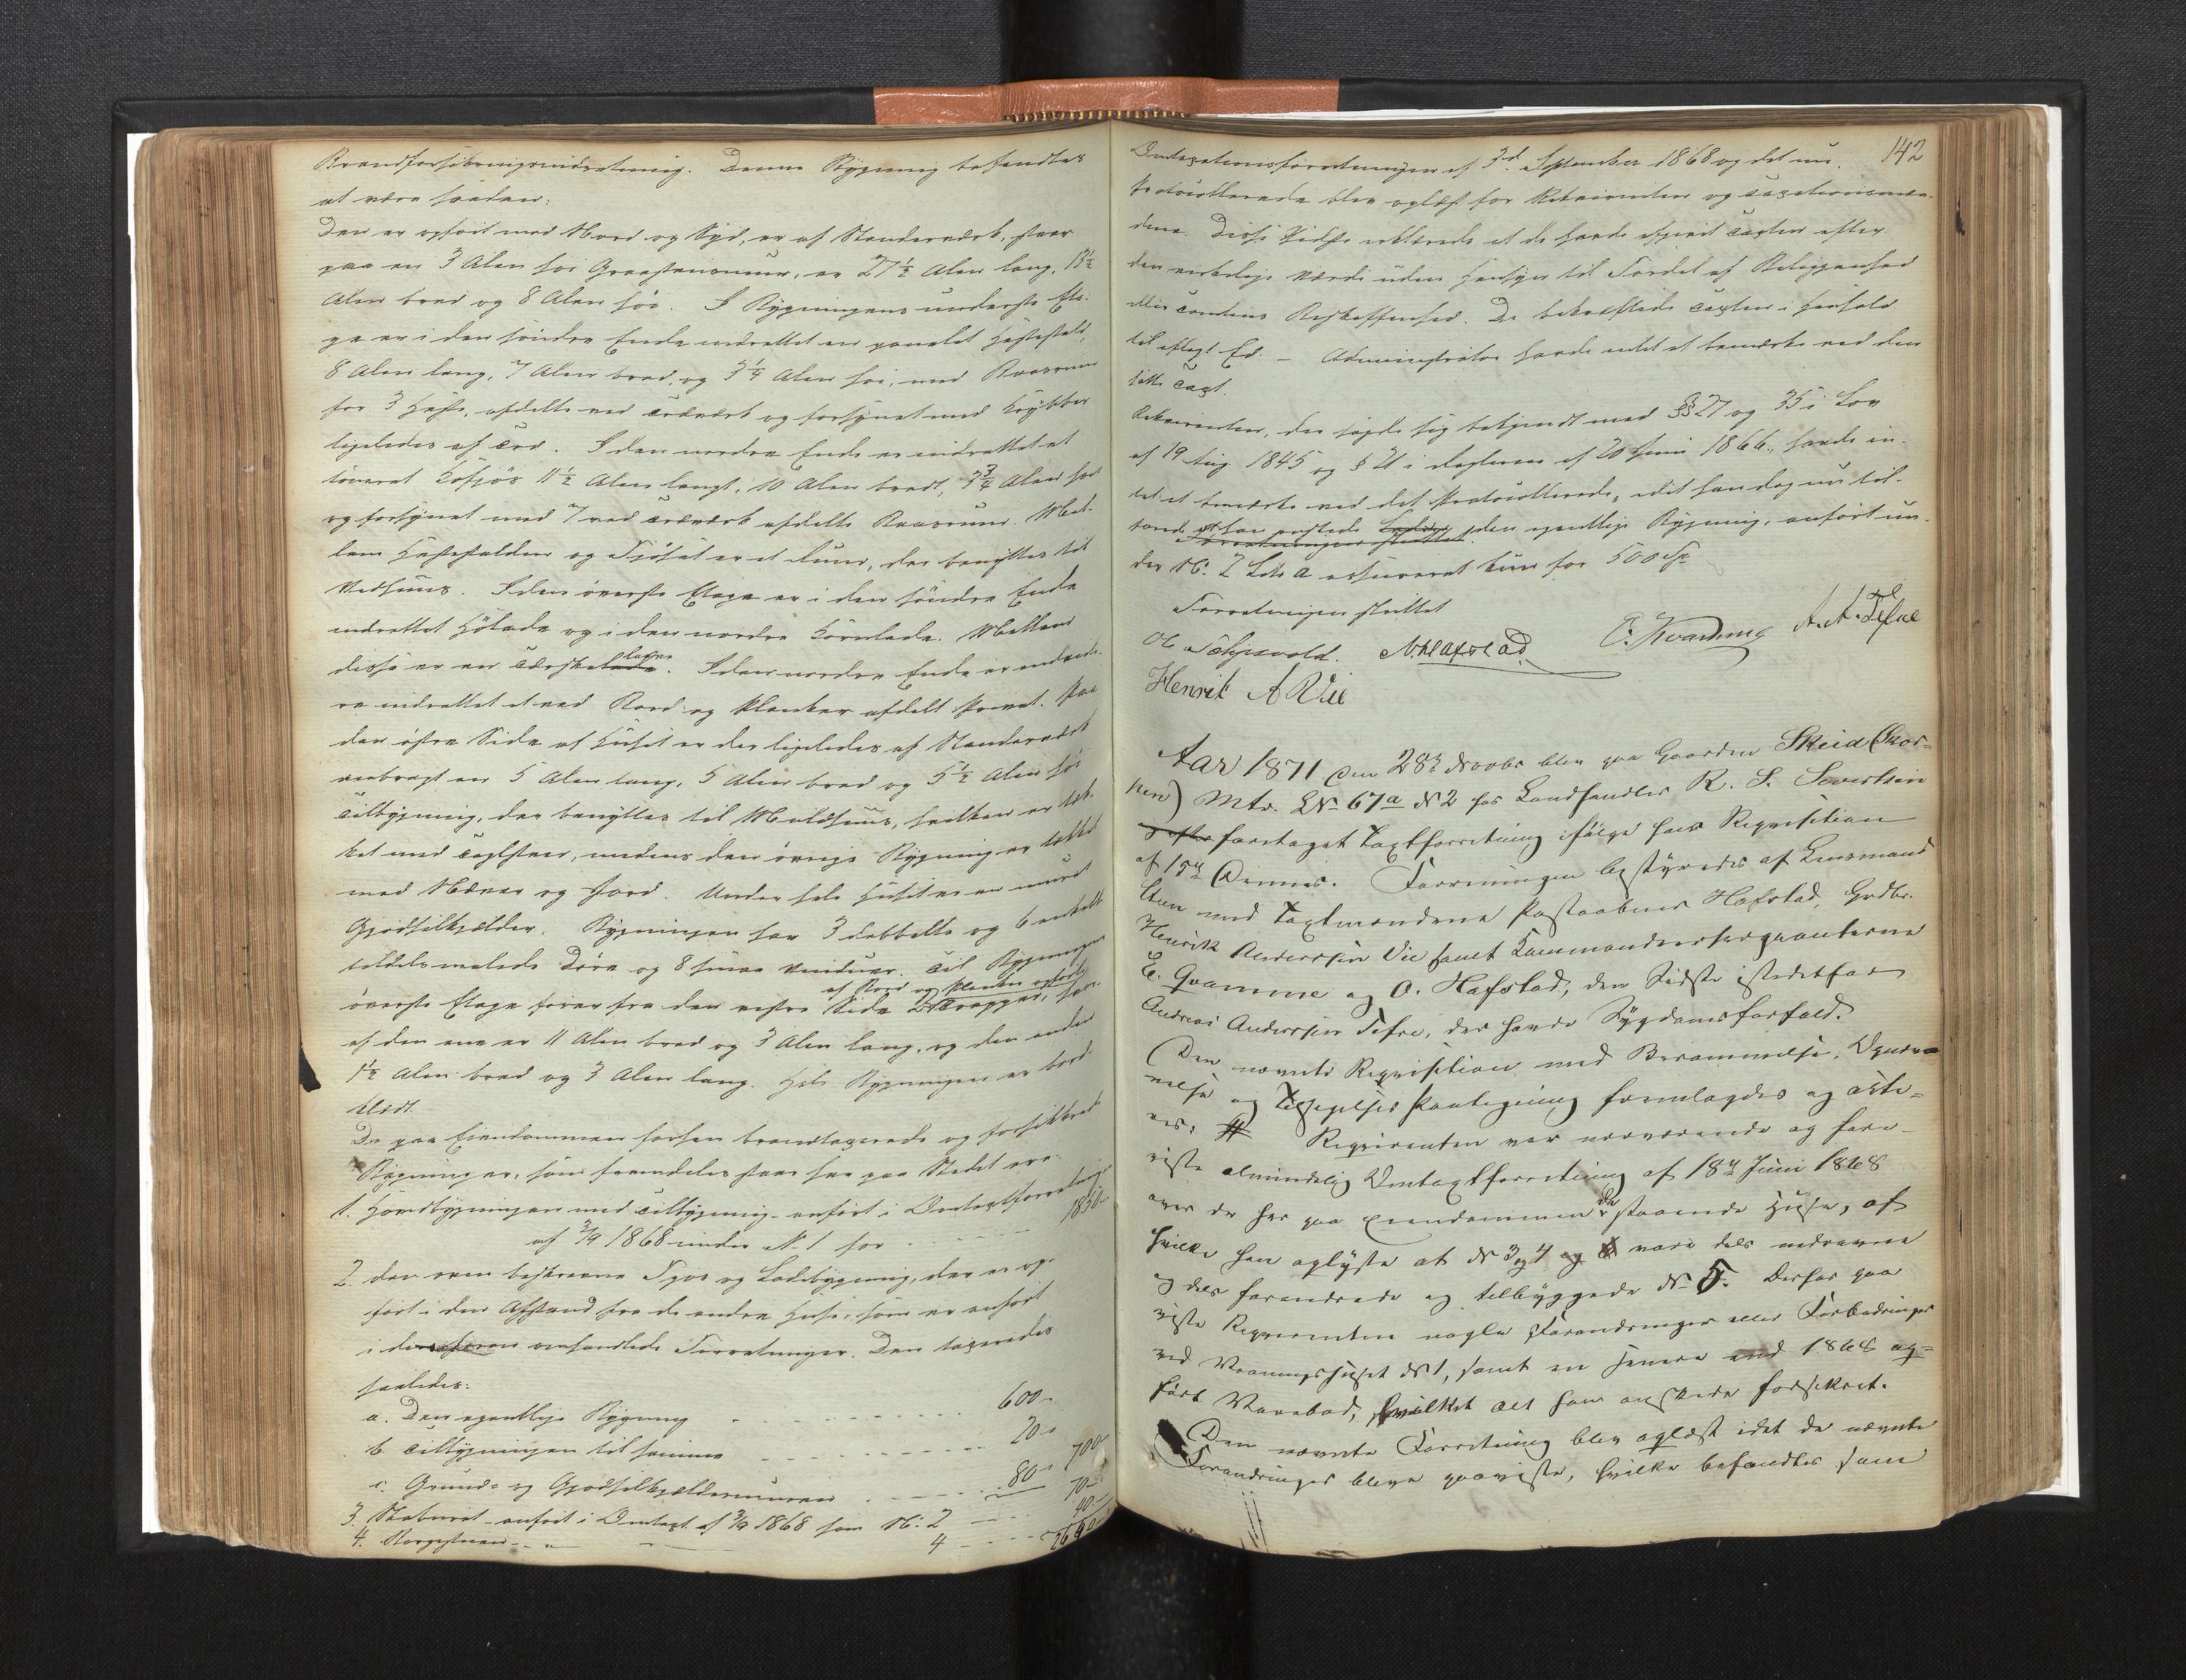 Brandforsikringsindretning. Denne Bygning befandtes
at være saadan:
Den er opført med Nord og Syd, er af Stenderværk, staar
paa en 3 Alen høi Graastensmuur, er 27 1/2 Alen lang, 13 1/2
Alen bred og 8 Alen høi. I Bygningens underste Eta-
ge er i den søndre Ende indrettet en panelet Hestestald,
8 Alen lang, 7 Alen bred, og 3 1/4 Alen høi, med Baasrum
for 3 Heste, afdelte ved Træværk og forsynet med Krybber
ligeledes af Træ. I den nordre Ende er indrettet et
tømret Kofjøs 11 1/2 Alen langt, 10 Alen bredt, 3 3/4 Alen høit
og forsynet med 7 ved Træværk afdelte Baasrum. Mel-
lem Hestestalden og Fjøset er et Rum, der benyttes til
Vedhuus. I den øverste Etage er i den søndre Ende
indrettet Hølade og i den nordre Kornlade. Mellem
disse er en Tærskelade. I den nordre Ende er endvide-
re indrettet et ved Bord og Planker afdelt Privet. Paa
den østre Side af Huset er der ligeledes af Stenderværk
anbragt en 5 Alen lang, 5 Alen bred og 5 1/2 Alen høi
Tilbygning, der benyttes til Møldhuus, hvilken er tæk-
ket med Taglsten, medens den øvrige Bygning er tækket
med Næver og Jord. Under hele Huset er en muret
Gjødselkjælder. Bygningen har 3 dobbelte og 6 enkelte
tildels malede Døre og 8 smaa Vinduer. Til Bygningens
af Bord og Planker opførte
øverste Etage fører fra den vestre Side 2 Trapper, hvor-
af den ene er 11 Alen bred og 3 Alen lang, og den anden
1 1/2 Alen bred og 3 Alen lang. Hele Bygningen er bord-
klædt.
De paa Eiendommen forhen brandtaxerede og forsikrede
Bygninger, som fremdeles staar her paa Stedet ere:
1. Hovedbygningen med Tilbygning - anført i Omtaxtforretning
af 3/9 1868 under N. 1 for 1850-
2. den oven beskrevne Fjøs og Ladebygning, der er op-
ført i den Afstand fra de andre Huse, som er anført
i den foran omhandlede Forretninger. Den taxeredes
saaledes:
a. Den egentlige Bygning 600-
b. Tilbygningen til samme 20-
c. Grund- og Gjødselkjældermuren 80- 700-
3. Staburet - anført i Omtaxt af 3/9 1868 som N. 2 70-
4. 4 40-
142
Omtaxationsforretningen af 3d. September 1868 og det nu
Protocollerede blev oplæst for Rekvirenten og Taxationsmæn-
dene. Disse Sidste erklærede at de havde afgivet Taxten efter
den virkelige Værdi uden Hensyn til Fordel af Beliggenhed
eller Tomtens Beskaffenhed. De bekræftede Taxten i Henhold
til aflagt Ed. - Administrator havde intet at bemærke ved den
satte Taxt.
Rekvirenten, der sagde sig bekjendt med §§ 27 og 35 i Lov
af 19 Aug. 1845 og § 21 i Lov af 20 Juni 1866, havde in-
tet at bemærke ved det Protocollerede, idet han dog nu til-
føied at han ønskede den egentlige Bygning, anført un-
der N. 2 Litr. a assureret kun for 500 Sp
Forretningen sluttet
N. Hafstad E. Kvamme A. A. Tefre
Henrik A Vie
Aar 1871 den 28de Novbr blev paa Gaarden Skeid (Skor-
pen) Mtr. LN. 67a N 2 hos Landhandler R. S. Sivertsen
foretaget Taxtforretning ifølge hans Reqvisition
af 15de Dennes. Forretningen bestyredes af Lensmand
med Taxtmændene Postaabner Hafstad, Grdbr.
Henrik Anderssen Vie samt Kommandeersergeanterne
E. Qvamme og O. Hafstad, den Sidste istedetfor
Andreas Anderssen Tefre, der havde Sygdomsforfald.
Den nævnte Reqvisition med Berammelse, Opnæv-
nelse og Tilsigelses Paategning fremlagdes og acte-
res. Reqvirenten var nærværende og fore-
viste almindelig Omtaxtforretning af 18de Juni 1868
over de her paa Eiendommen da staaende Huse, af
hvilke han oplyste at N 3 og 4 vare dels nedrevne
og dels forandrede og tilbyggede N 5. Derfor paa
viste Reqvirenten nogle Forandringer eller Forbedringer
ved Vaaningshuset N 1, samt en senere end 1868 op-
ført Varebod, hvilket alt han ønskede forsikret.
Den nævnte Forretning blev oplæst idet de nævnte
Forandringer bleve paaviste, hvilke befandtes som